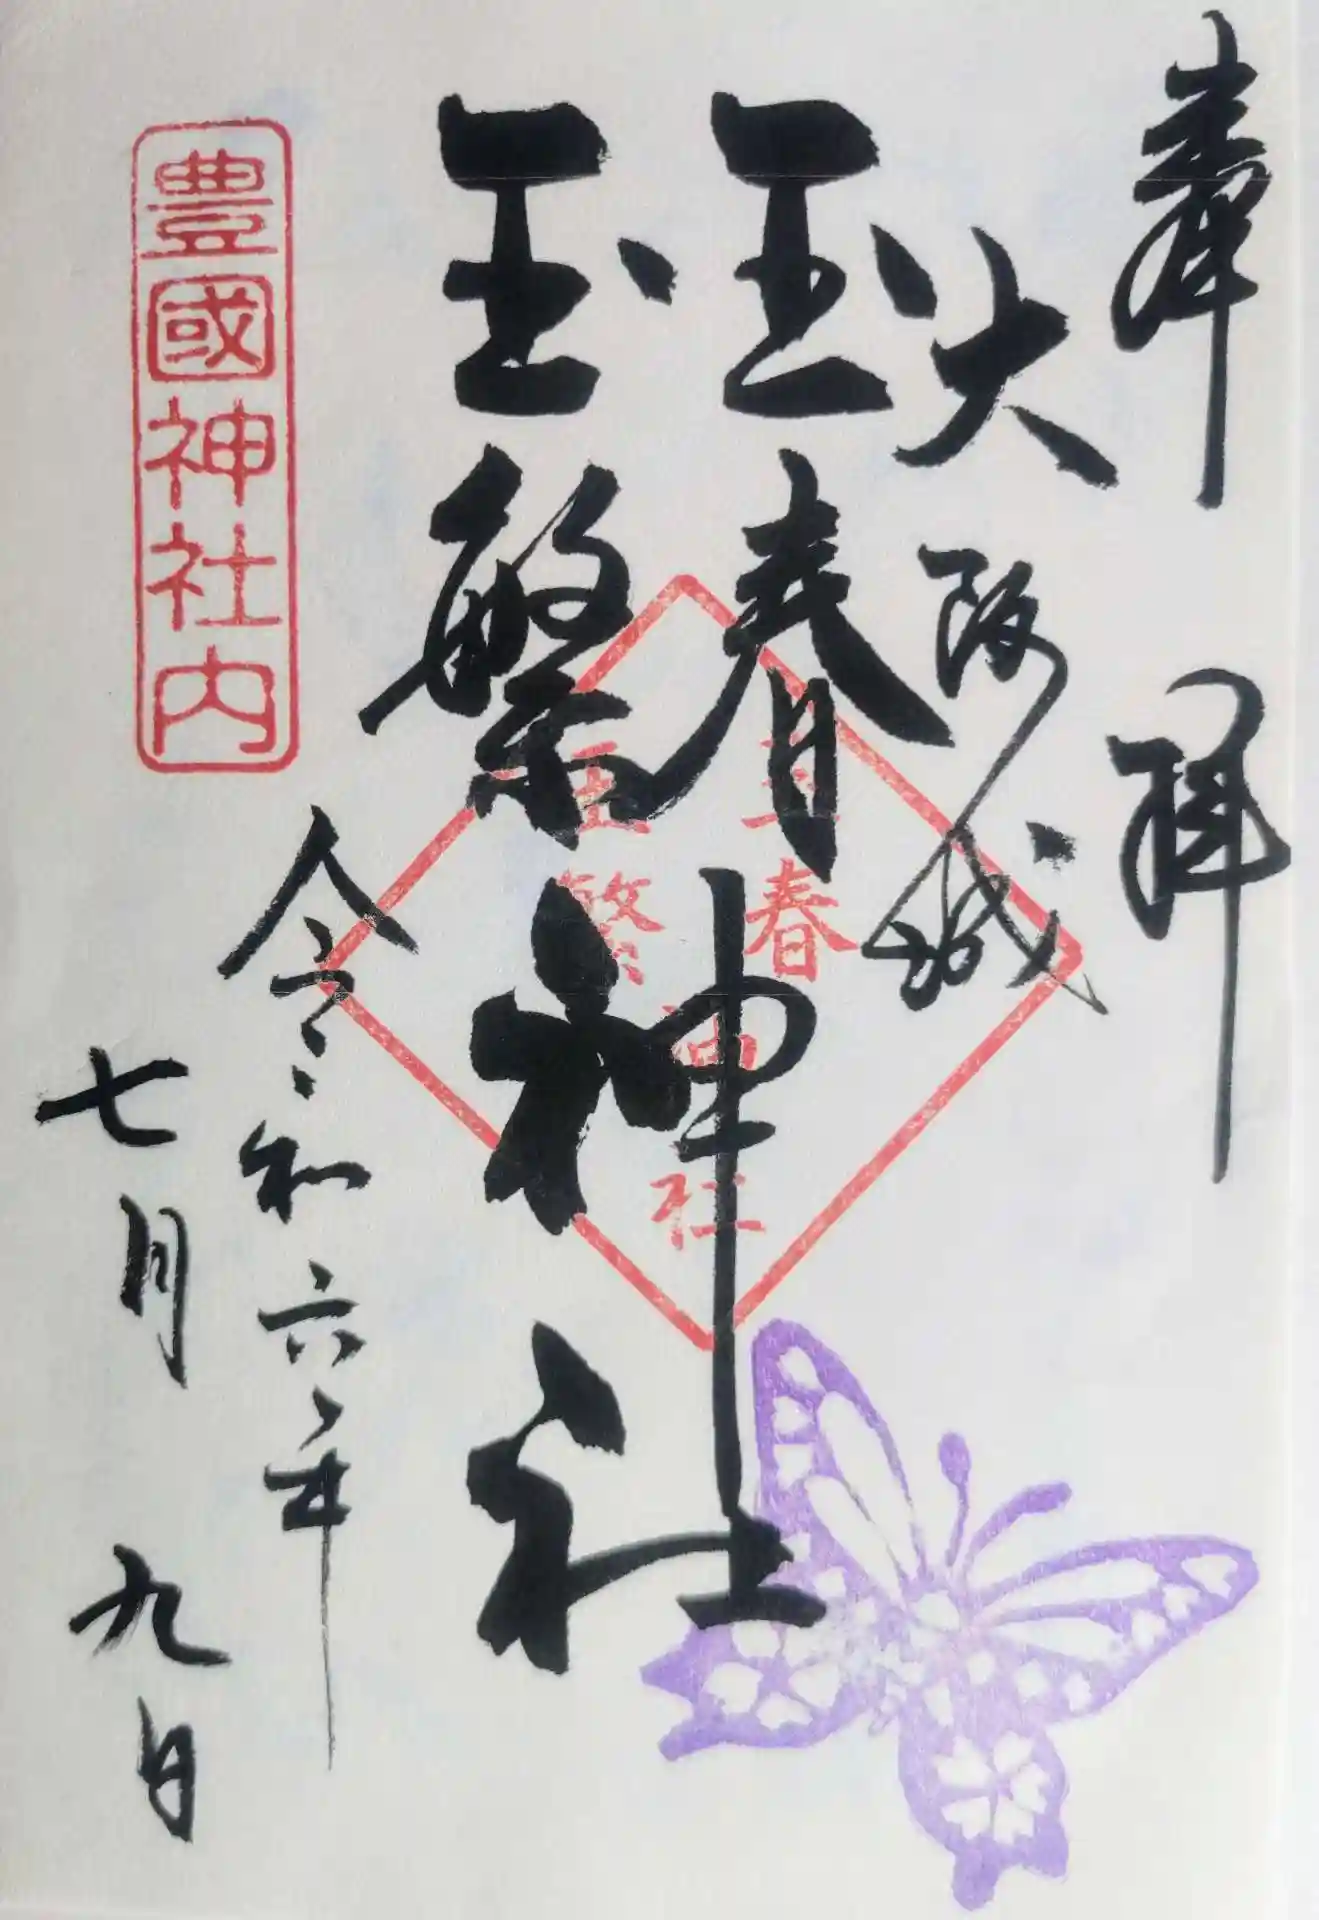 奉拝
大阪城
玉春
玉繁
神社
玉春
玉繁
神社
令和六年
七月九日
豊國神社内